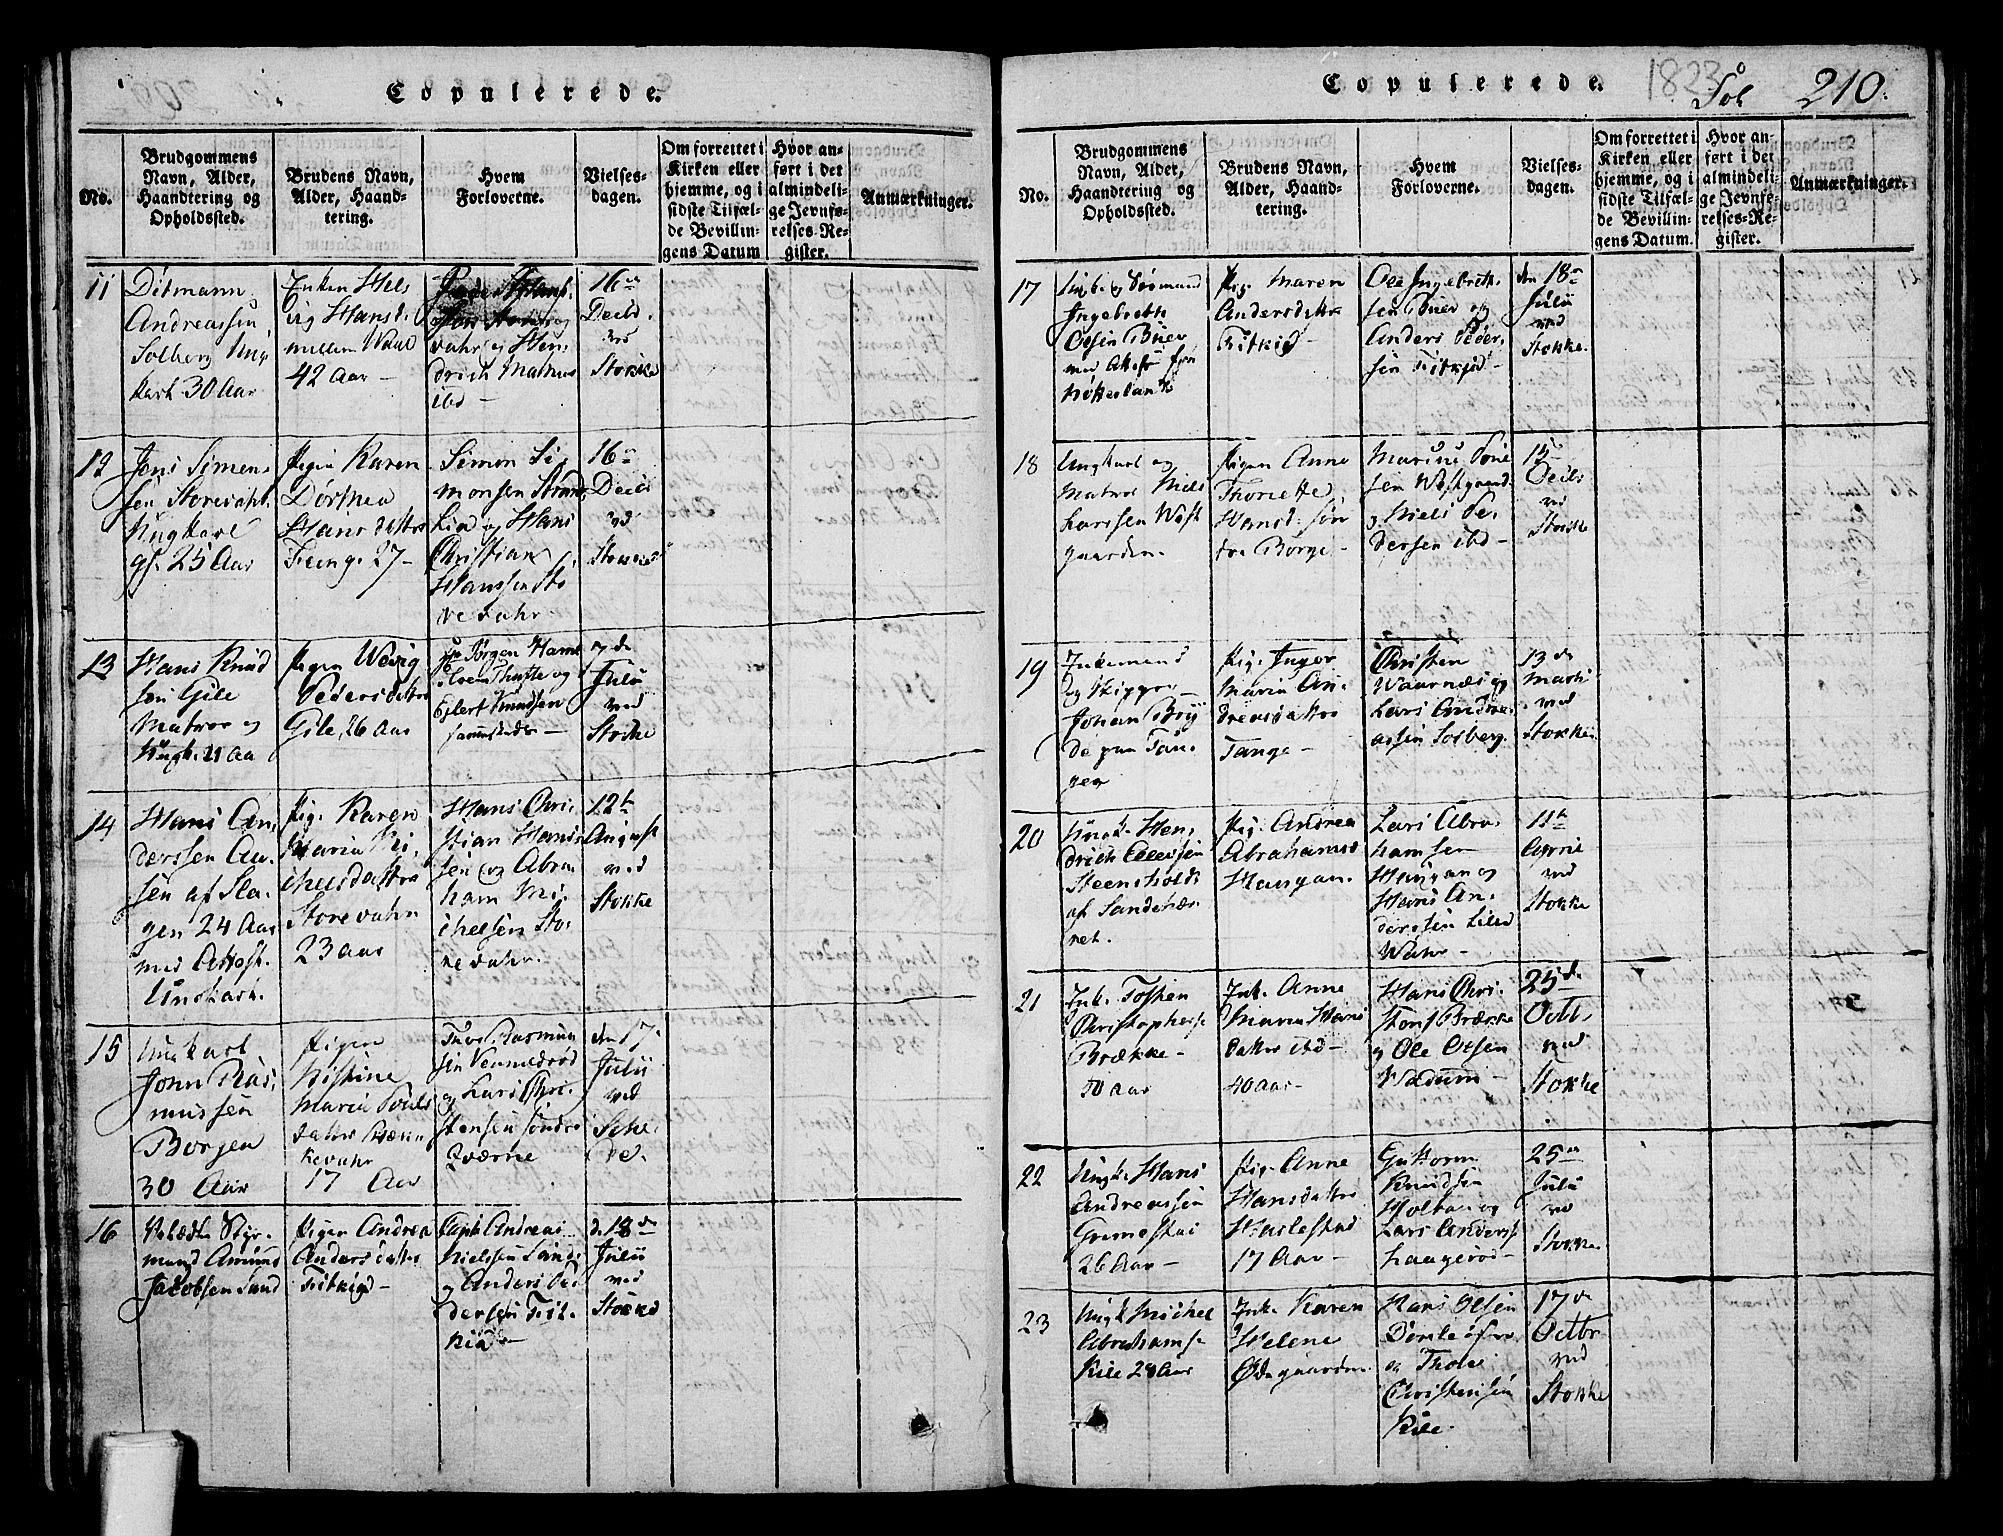 Copulerede.
No.
Brudgommens
Navn, Alder,
Haandtering og
Opholdssted.
Brudens Navn,
Alder, Haand-
tering.
Hvem
Forloverne.
Vielses-
dagen.
Om forrettet i
Kirken eller
hjemme, og i
sidste Tilfæl-
de Bevillin-
gens Datum
Hvor an-
ført i det
almindeli-
ge Jevnfø-
relses-Re-
gister.
Anmærkninger.
11
Ditmann
Andreassen
Solberg Ung
karl 30 Aar
Enken Hel
vig Hansd.
mellem Wahl
42 Aar –
vahr og Hen
drich Mathis
ibd –
16de
Decbr.
ved
Stokke
12
Jens Simen-
sen Storevahr
Ungkarl
gl. 25 Aar
Pigen Karen
Dorthea
Hans datter
Feeng. 27 –
Simon Si-
monsen Strand
Lind og Hans
Christian
Hanssen Sto
revahr.
16de
Decbr
ved
Stokke
13
Hans Knud
sen Gile
Matros og
Ungk. 21 aa
Pigen Wevig
Pedersdattr
Gile, 26 Aar
Jørgen Hans
Eylert Knudsen
sammesteder –
7de
Julii
ved
Stokke
14
Hans An-
derssen Aa-
sen af Sla-
gen 24 Aar
med Attest.
Ungkarl.
Pig. Karen
Maria Mi-
chelsdattra
Storevahr
23 aar
Hans Chri-
stian Hans
sen og Abra
ham Mi-
chelsen Sto-
revahr.
12te
August
ved
Stokke
15
Ungkarl
John Ras-
mussen
Borgen
30 Aar
Pigen
Kistine
Maria Povels
datter Bække
kevahr
17 Aar
Ture Rasmus
sen Vennerød
og Lars Chri-
stensen søndre
Qværne
den 17.
Julii
ved
Sche-
ve.
16
Styr-
mand Amund
Jacobsen Sand
Pigen Andrea
Anders datter
Fitkjed –
Capt. Andreas
Nielsen Sand
og Anders Pe-
dersen Fit-
kied –
d. 18de
Julii
ved
Stokke
Copulerede.
1823
Fol
210.
No.
Brudgommens
Navn, Alder,
Haandtering og
Opholdssted.
Brudens Navn,
Alder, Haand-
tering.
Hvem
Forloverne.
Vielses-
dagen.
Om forrettet i
Kirken eller
hjemme, og i
sidste Tilfæl-
de Bevillin-
gens Datum.
Hvor an-
ført i det
almindeli-
ge Jevnfø-
relses-Re-
gister.
Anmærkninger.
17
Ungk. og Sørmand
Ingebreth
Olsen Buer
med Attest fra
Pig. Maren
Andersdattr
Fitkid –
Ole Ingebreth-
sen Buer og
Anders Peder-
sen Fitkjed –
den 18de
Julii
ved
Stokke.
18
Ungkarl og
Matros Niels
Larssen West
gaarden
Pigen Anne
Thoriette
Hansd. søn
dre Borge –
Marius
sen Westgaard
og Niels Pe-
dersen ibd –
15
Decbr
ved
Stokke
19
Enkemand
og Skipper –
Johan Bry
de paa Tan-
gen
Pig. Inger
Maria An-
dreasdattr
Tange –
Christen
Waarnæs og
Lars Andre-
assen Solberg.
13de
Marti
ved
Stokke.
20
Ungk. Hen-
drich Ellevsen
Steensholdt
af Sandehær
ret.
Pig. Andrea
Abrahamsd
Haugan.
Lars Abra-
hamsen
Haugan og
Hans An-
derssen Lille
Wahr –
11te
April
ved
Stokke
21
Enk. Tosten
Christophers
Brække –
50 aar
Enk. Anne
Maria Hans
datter ibd –
40 aar –
Hans Chri-
stens Brække
og Ole Olsen
Wadum –
25de
Octbr
ved
Stokke
22
Ungk. Hans
Andreassen
Grimestad
26 Aar –
Pig. Anne
Hansdattr
Harlestad
17 Aar –
Guttorm
Knudsen
Holtan og
Lars Anderss
haagerød –
25de
Julii
ved
Stokke
23
Ungk Michel
Abrahamse
Kile 28 Aar
Enk. Karen
Helene
Ødegaarden
Hans Olsen
og Thore
Christensen
Kile.
17de
Octbr
ved
Stokke